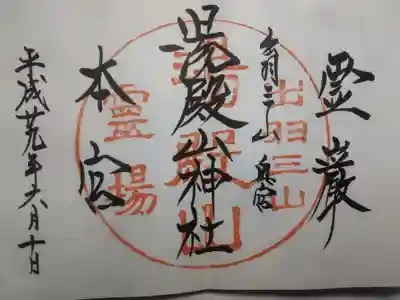 霊巌
出羽三山 奥宮
湯殿山神社
本宮
平成廿九年六月十日
出羽三山
湯殿山
霊場